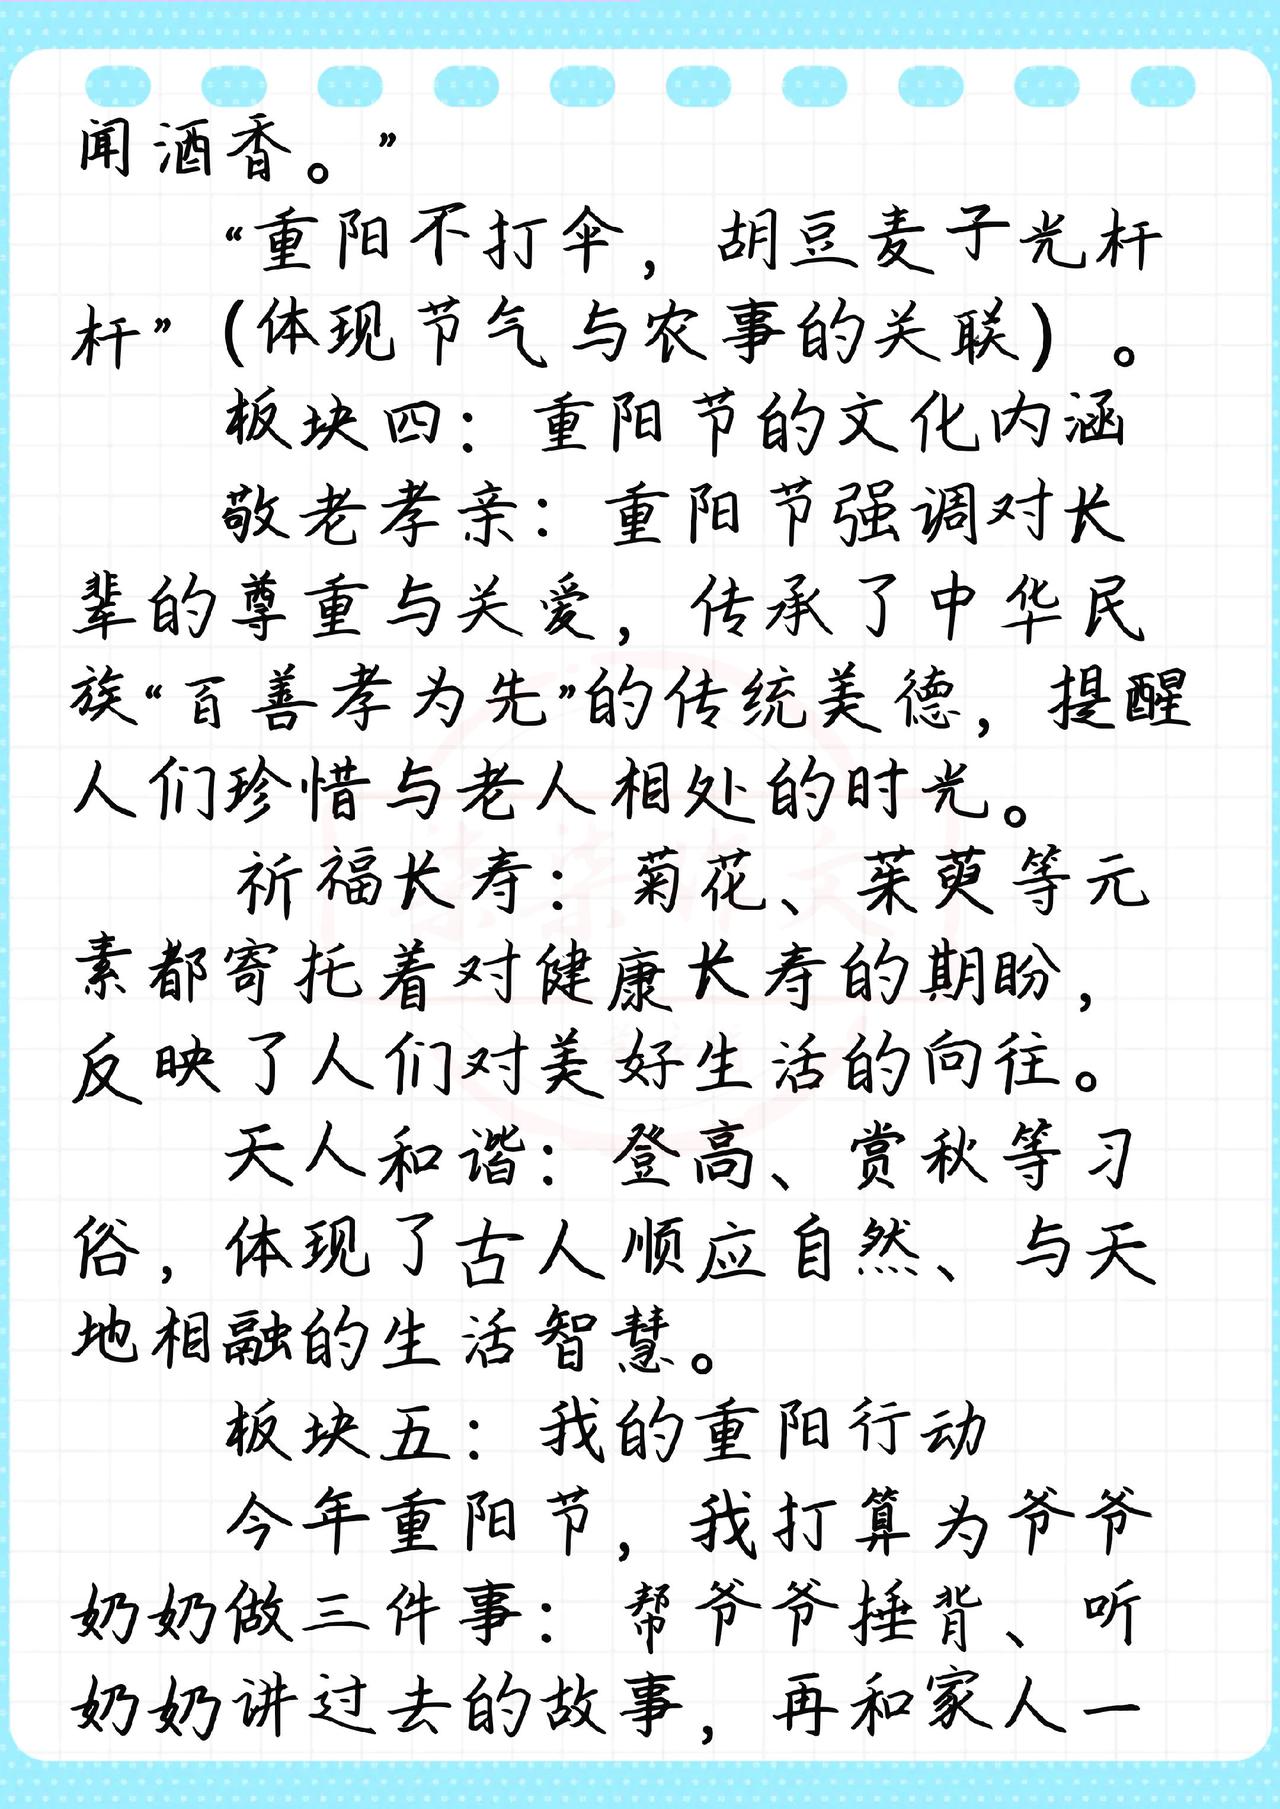 闻酒香。”
“重阳不打伞，胡豆麦子光杆
杆”（体现节气与农事的关联）。
板块四：重阳节的文化内涵
敬老孝亲：重阳节强调对长
辈的尊重与关爱，传承了中华民
族“百善孝为先”的传统美德，提醒
人们珍惜与老人相处的时光。
祈福长寿：菊花、茱萸等元
素都寄托着对健康长寿的期盼，
反映了人们对美好生活的向往。
天人和谐：登高、赏秋等习
俗，体现了古人顺应自然、与天
地相融的生活智慧。
板块五：我的重阳行动
今年重阳节，我打算为爷爷
奶奶做三件事：帮爷爷捶背、听
奶奶讲过去的故事，再和家人一